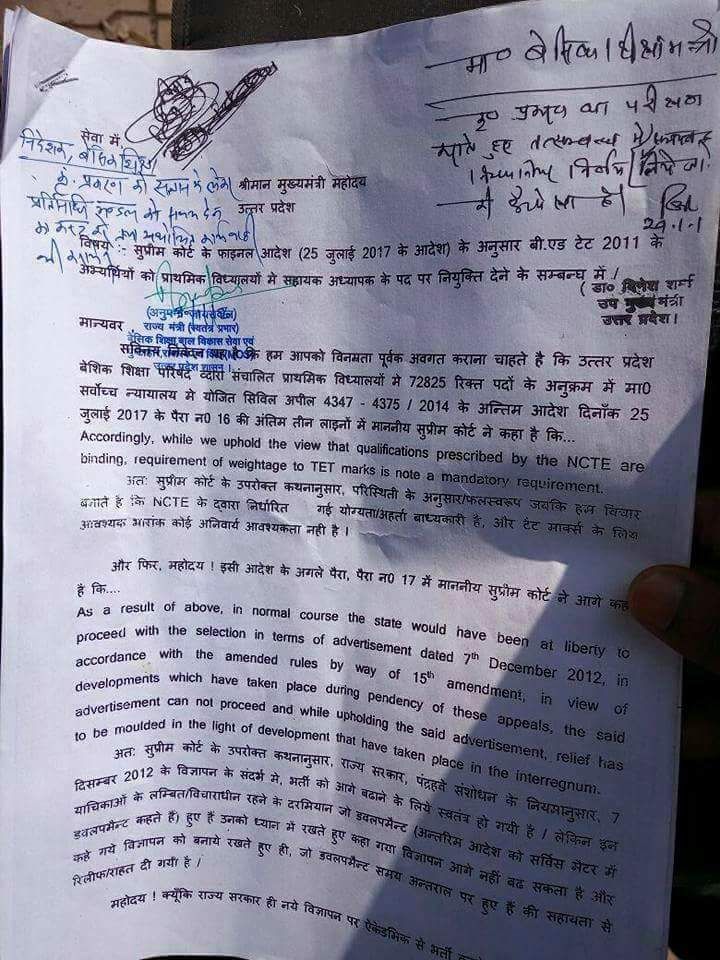 मा० बेसिक शिक्षा मंत्री
का परीक्षण
हुए तत्सम्बन्ध में
निर्णय
सेवा में,
निदेशक, बेसिक शिक्षा
श्रीमान मुख्यमंत्री महोदय
उत्तर प्रदेश
विषय :- सुप्रीम कोर्ट के फाइनल आदेश (25 जुलाई 2017 के आदेश) के अनुसार बी.एड टेट 2011 के
अभ्यर्थियों को प्राथमिक विध्यालयों में सहायक अध्यापक के पद पर नियुक्ति देने के सम्बन्ध में /
(डा० दिनेश शर्मा
उप मुख्य मंत्री
उत्तर प्रदेश।
राज्य मंत्री (स्वतंत्र प्रभार)
बेसिक शिक्षा बाल विकास सेवा एवं
मान्यवर
सविनम्र निवेदन यह है कि हम आपको विनमता पूर्वक अवगत कराना चाहते है कि उत्तर प्रदेश
बेशिक शिक्षा परिषद द्वारा संचालित प्राथमिक विध्यालयों मे 72825 रिक्त पदों के अनुक्रम में मा0
सर्वोच्च न्यायालय मे योजित सिविल अपील 4347 - 4375 / 2014 के अन्तिम आदेश दिनाँक 25
जुलाई 2017 के पैरा न0 16 की अंतिम तीन लाइनों में माननीय सुप्रीम कोर्ट ने कहा है कि...
Accordingly, while we uphold the view that qualifications prescribed by the NCTE are
binding, requirement of weightage to TET marks is note a mandatory requirement.
अतः सुप्रीम कोर्ट के उपरोक्त कथनानुसार, परिस्थिती के अनुसार/फलस्वरूप जबकि हम विचार
बनाते है कि NCTE के द्वारा निर्धारित गई योग्यता/अहर्ता बाध्यकारी है, और टेट मार्क्स के लिये
आवश्यक भारांक कोई अनिवार्य आवश्यकता नही है ।
और फिर, महोदय ! इसी आदेश के अगले पैरा, पैरा न0 17 में माननीय सुप्रीम कोर्ट ने आगे कहा
है कि....
As a result of above, in normal course the state would have been at liberty to
proceed with the selection in terms of advertisement dated 7th December 2012, in
accordance with the amended rules by way of 15th amendment, in view of
developments which have taken place during pendency of these appeals, the said
advertisement can not proceed and while upholding the said advertisement, relief has
to be moulded in the light of development that have taken place in the interregnum.
अतः सुप्रीम कोर्ट के उपरोक्त कथनानुसार, राज्य सरकार, पंद्रहवे संशोधन के नियमानुसार, 7
दिसम्बर 2012 के विज्ञापन के संदर्भ मे, भर्ती को आगे बढाने के लिये स्वतंत्र हो गयी है / लेकिन इन
याचिकाओं के लम्बित/विचाराधीन रहने के दरमियान जो डवलपमैन्ट (अन्तरिम आदेश को सर्विस मेटर में
डवलपमैन्ट कहते हैं) हुए हैं उनको ध्यान में रखते हुए कहा गया विज्ञापन आगे नहीं बढ सकता है और
कहे गये विज्ञापन को बनाये रखते हुए ही, जो डवलपमैन्ट समय अन्तराल पर हुए हैं की सहायता से
रिलीफ/राहत दी गयी है /
महोदय ! क्यूँकि राज्य सरकार ही नये विज्ञापन पर ऐकेडमिक से भर्ती